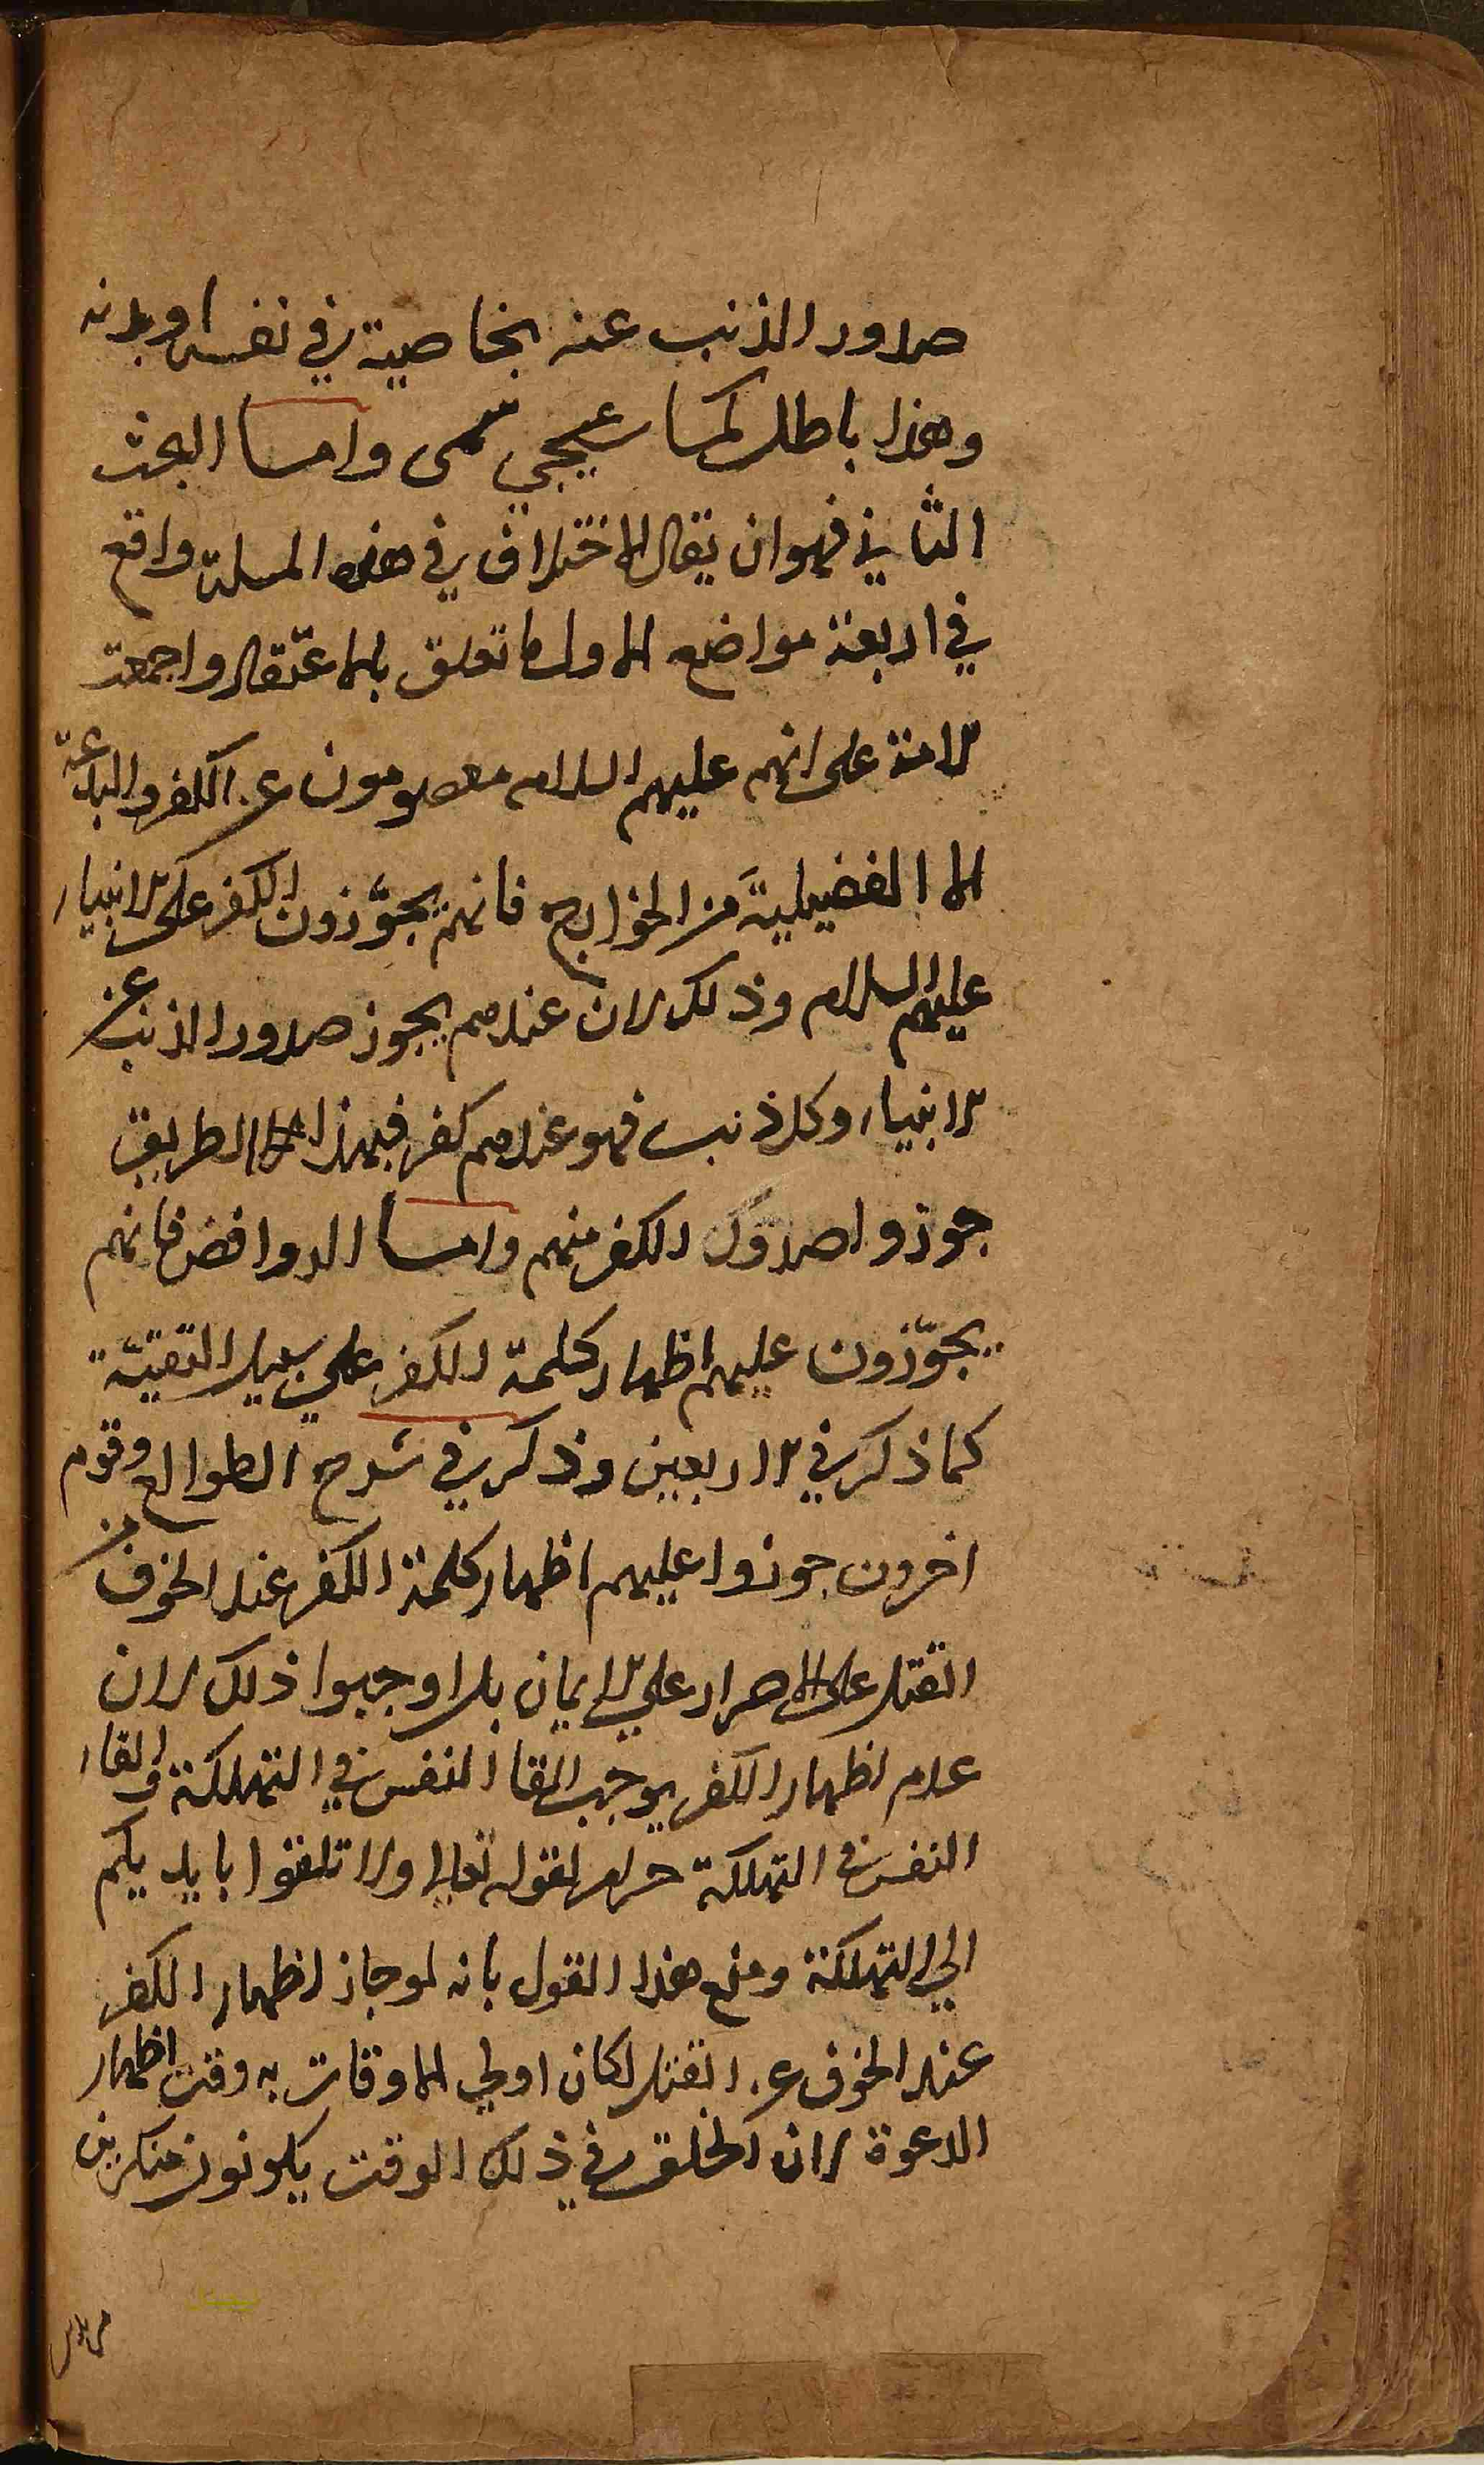 صدور الذنب عنه بخاصية في نفسه او بدنه
وهذا باطل كما سيجي واما البحث
الثاني فهو ان يقال الاختلاف في هذه المسلة واقع
في اربعة مواضع الاول ما تعلق بالاعتقاد واجمعت
الامة على انهم عليهم السلام معصومون عن الكفر والبدعة
الا الفضيلية من الخوارج فانهم يجوّزون الكفر على الانبياء
عليهم السلام وذلك لان عندهم يجوز صدور الذنب عن
الانبياء وكل ذنب فهو عندهم كفر فبهذا الطريق
جوزوا صدور الكفر منهم واما الروافض فانهم
يجوّزون عليهم اظهار كلمة الكفر على سبيل التقيّة
كما ذكر في الاربعين وذكر في شرح الطوالع وقوم
اخرون جوزوا عليهم اظهار كلمة الكفر عند الخوف من
القتل على الاصرار على الايمان بل اوجبوا ذلك لان
عدم اظهار الكفر يوجب القا النفس في التهلكة والقاء
النفس في التهلكة حرام لقوله تعالى ولا تلقوا بايديكم
الى التهلكة ومنع هذا القول بانه لو جاز اظهار الكفر
عند الخوف عن القتل لكان اولى الاوقات به وقت اظهار
الدعوة لان الخلق في ذلك الوقت يكونون منكرين